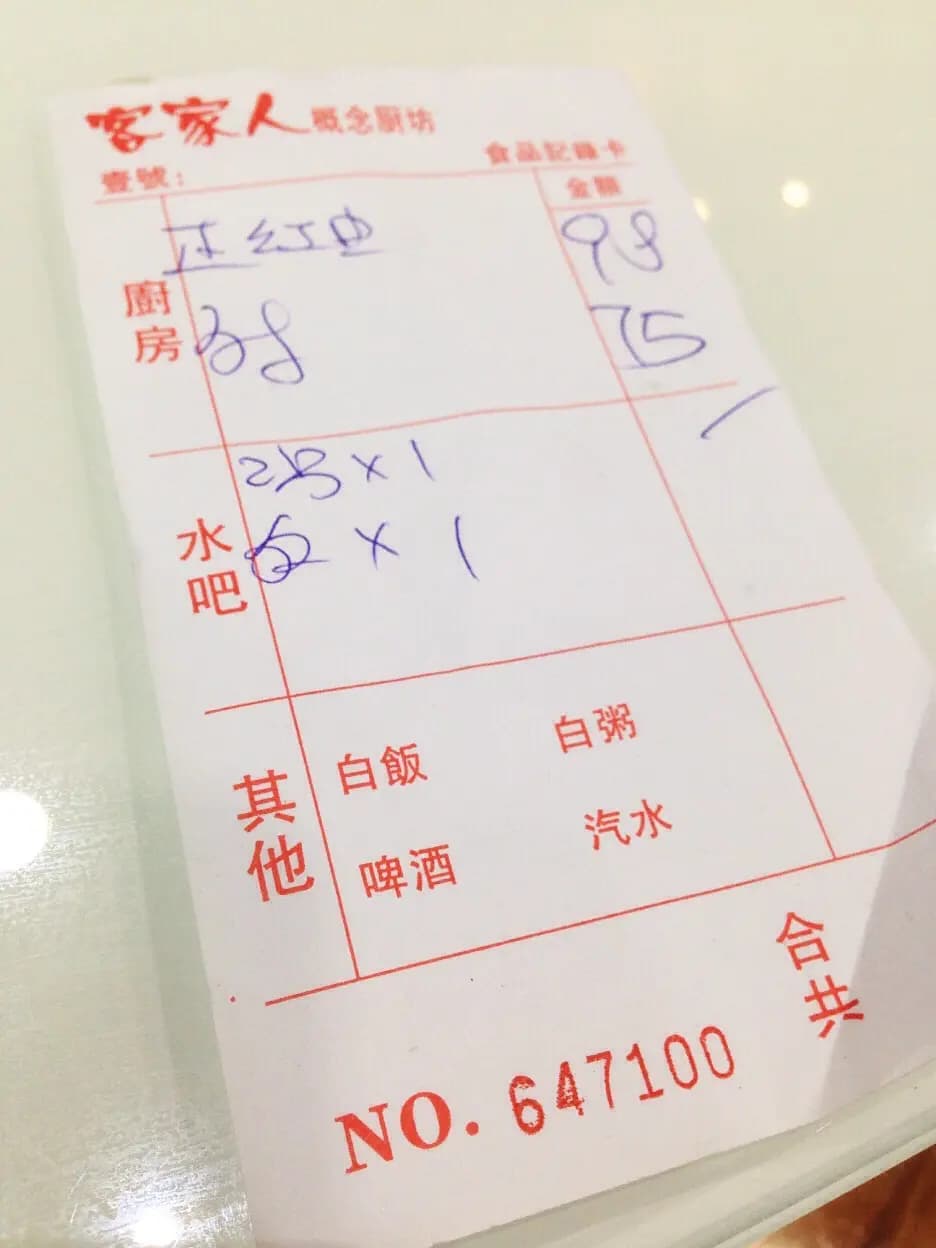 客家人概念厨坊
食品記錄卡
壹號：
金額
98
廚房
75
x 1
x 1
水吧
其他
白飯 白粥
啤酒 汽水
合共
NO. 647100